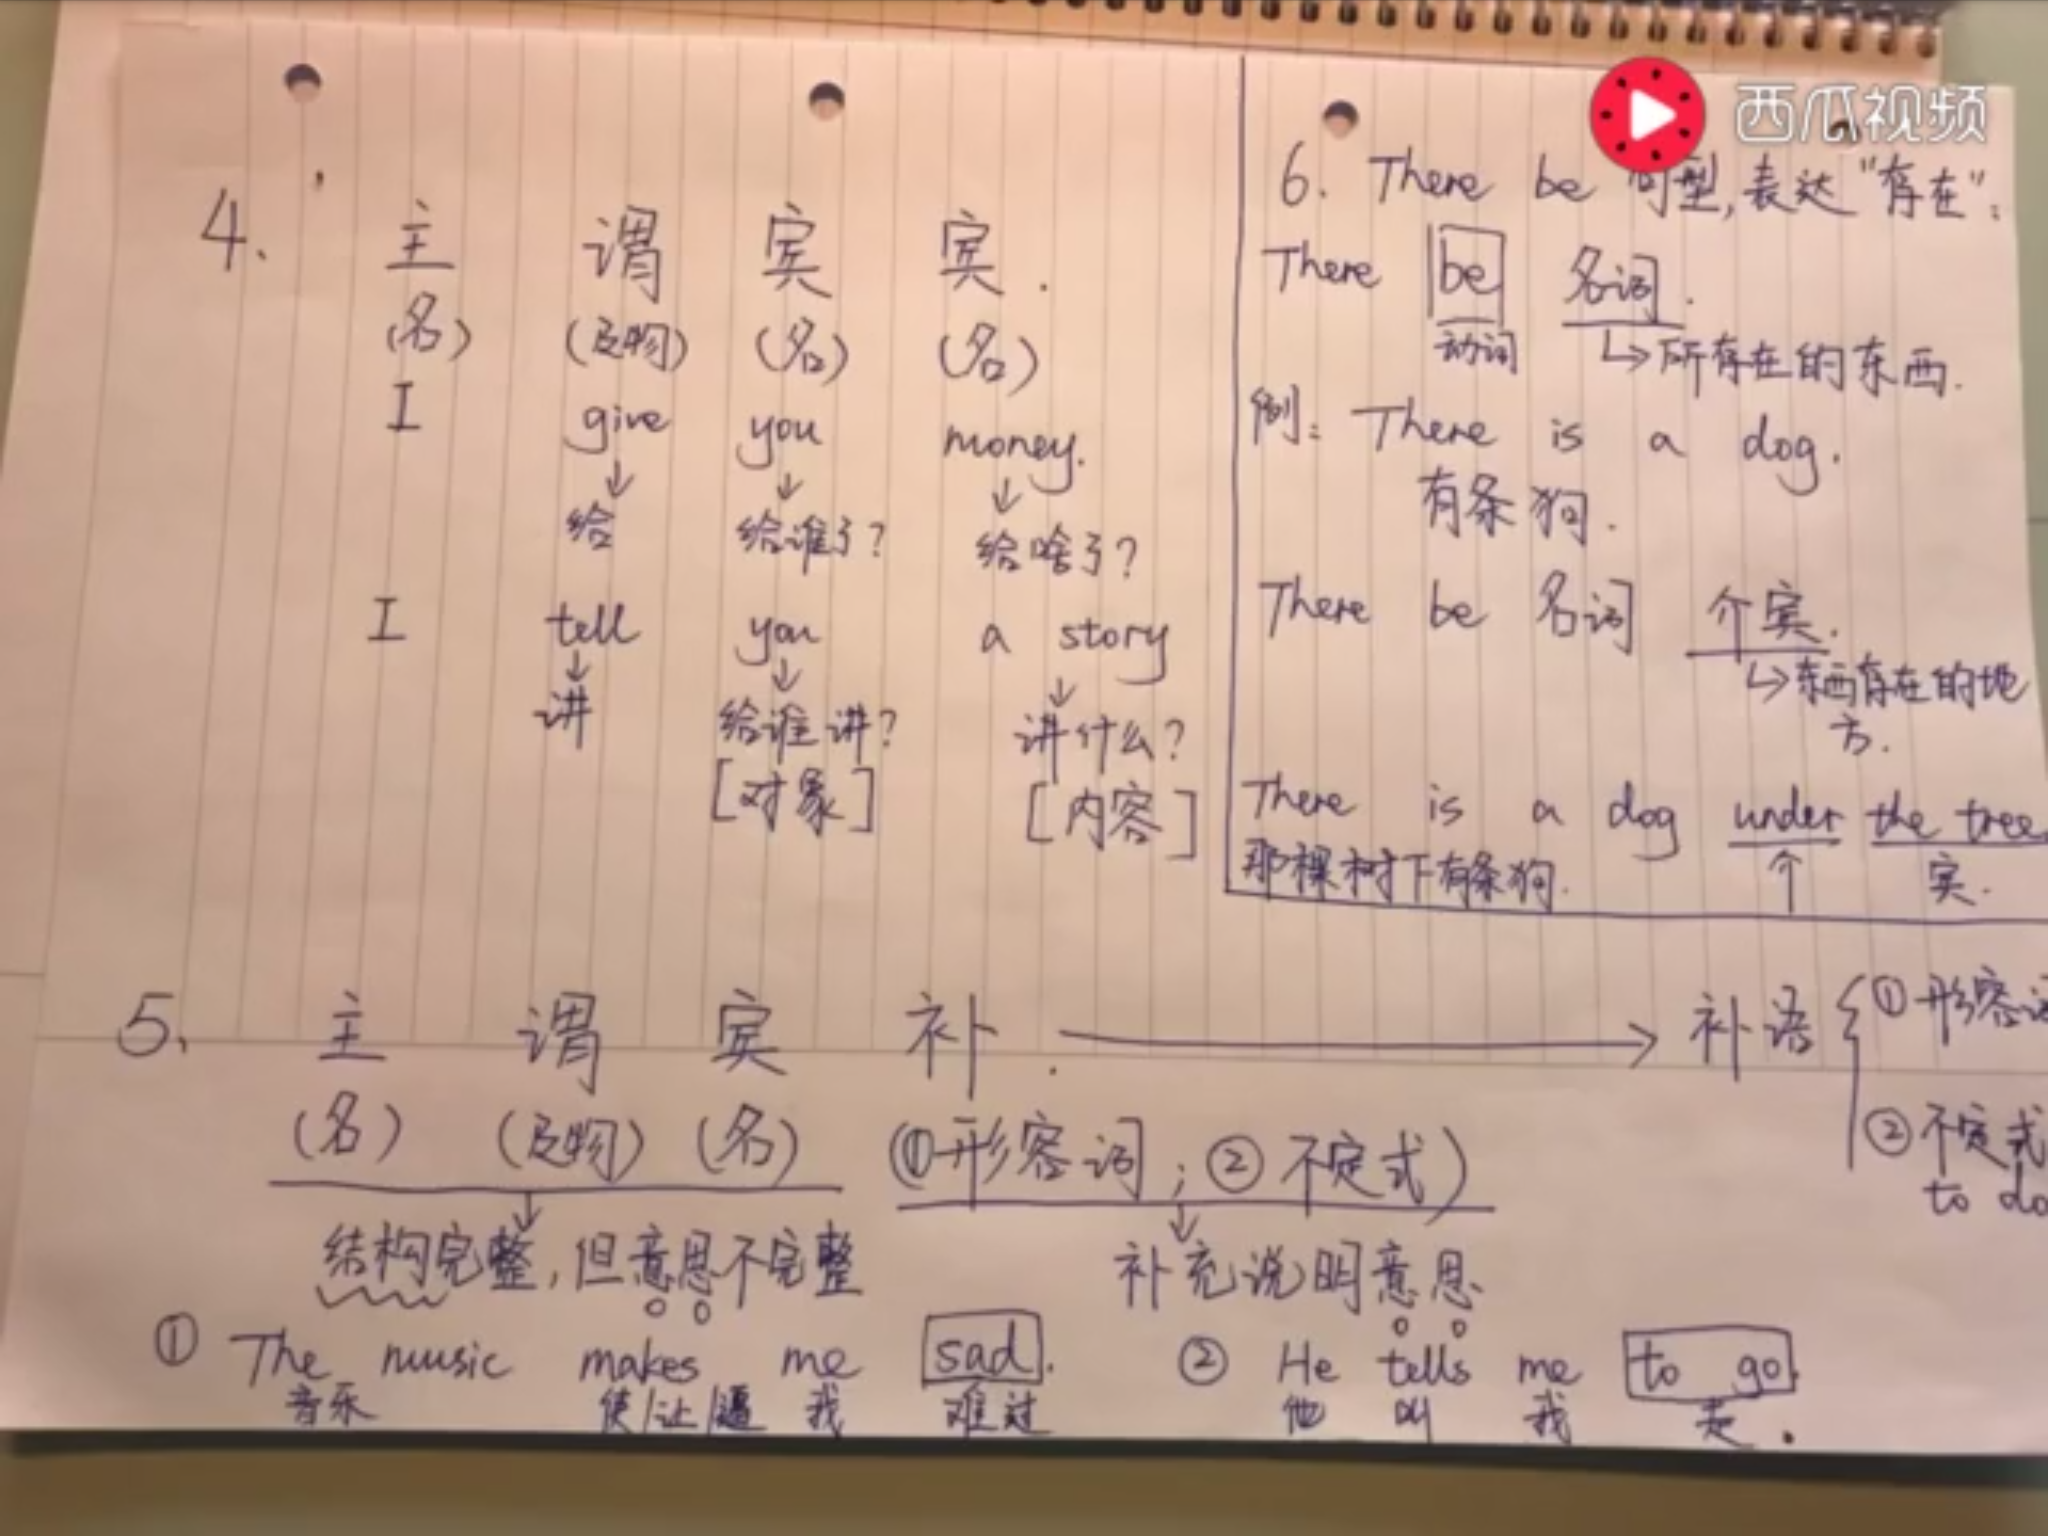 西瓜视频
4. 主 谓 宾 宾.
(名) (及物) (名) (名)
I give you money.
给 给谁了? 给啥了?
I tell you a story
讲 给谁讲? 讲什么?
[对象] [内容]
6. There be 句型,表达"存在":
There be 名词.
动词 所存在的东西.
例: There is a dog.
有条狗.
There be 名词 介宾.
东西存在的地
方.
There is a dog under the tree
那棵树下有条狗. 宾.
5. 主 谓 宾 补. 补语 ①形容词
(名) (及物) (名) (①形容词; ②不定式) ②不定式
to do
结构完整,但意思不完整 补充说明意思
① The music makes me sad. ② He tells me to go.
音乐 使/让/逼 我 难过 他 叫 我 走.